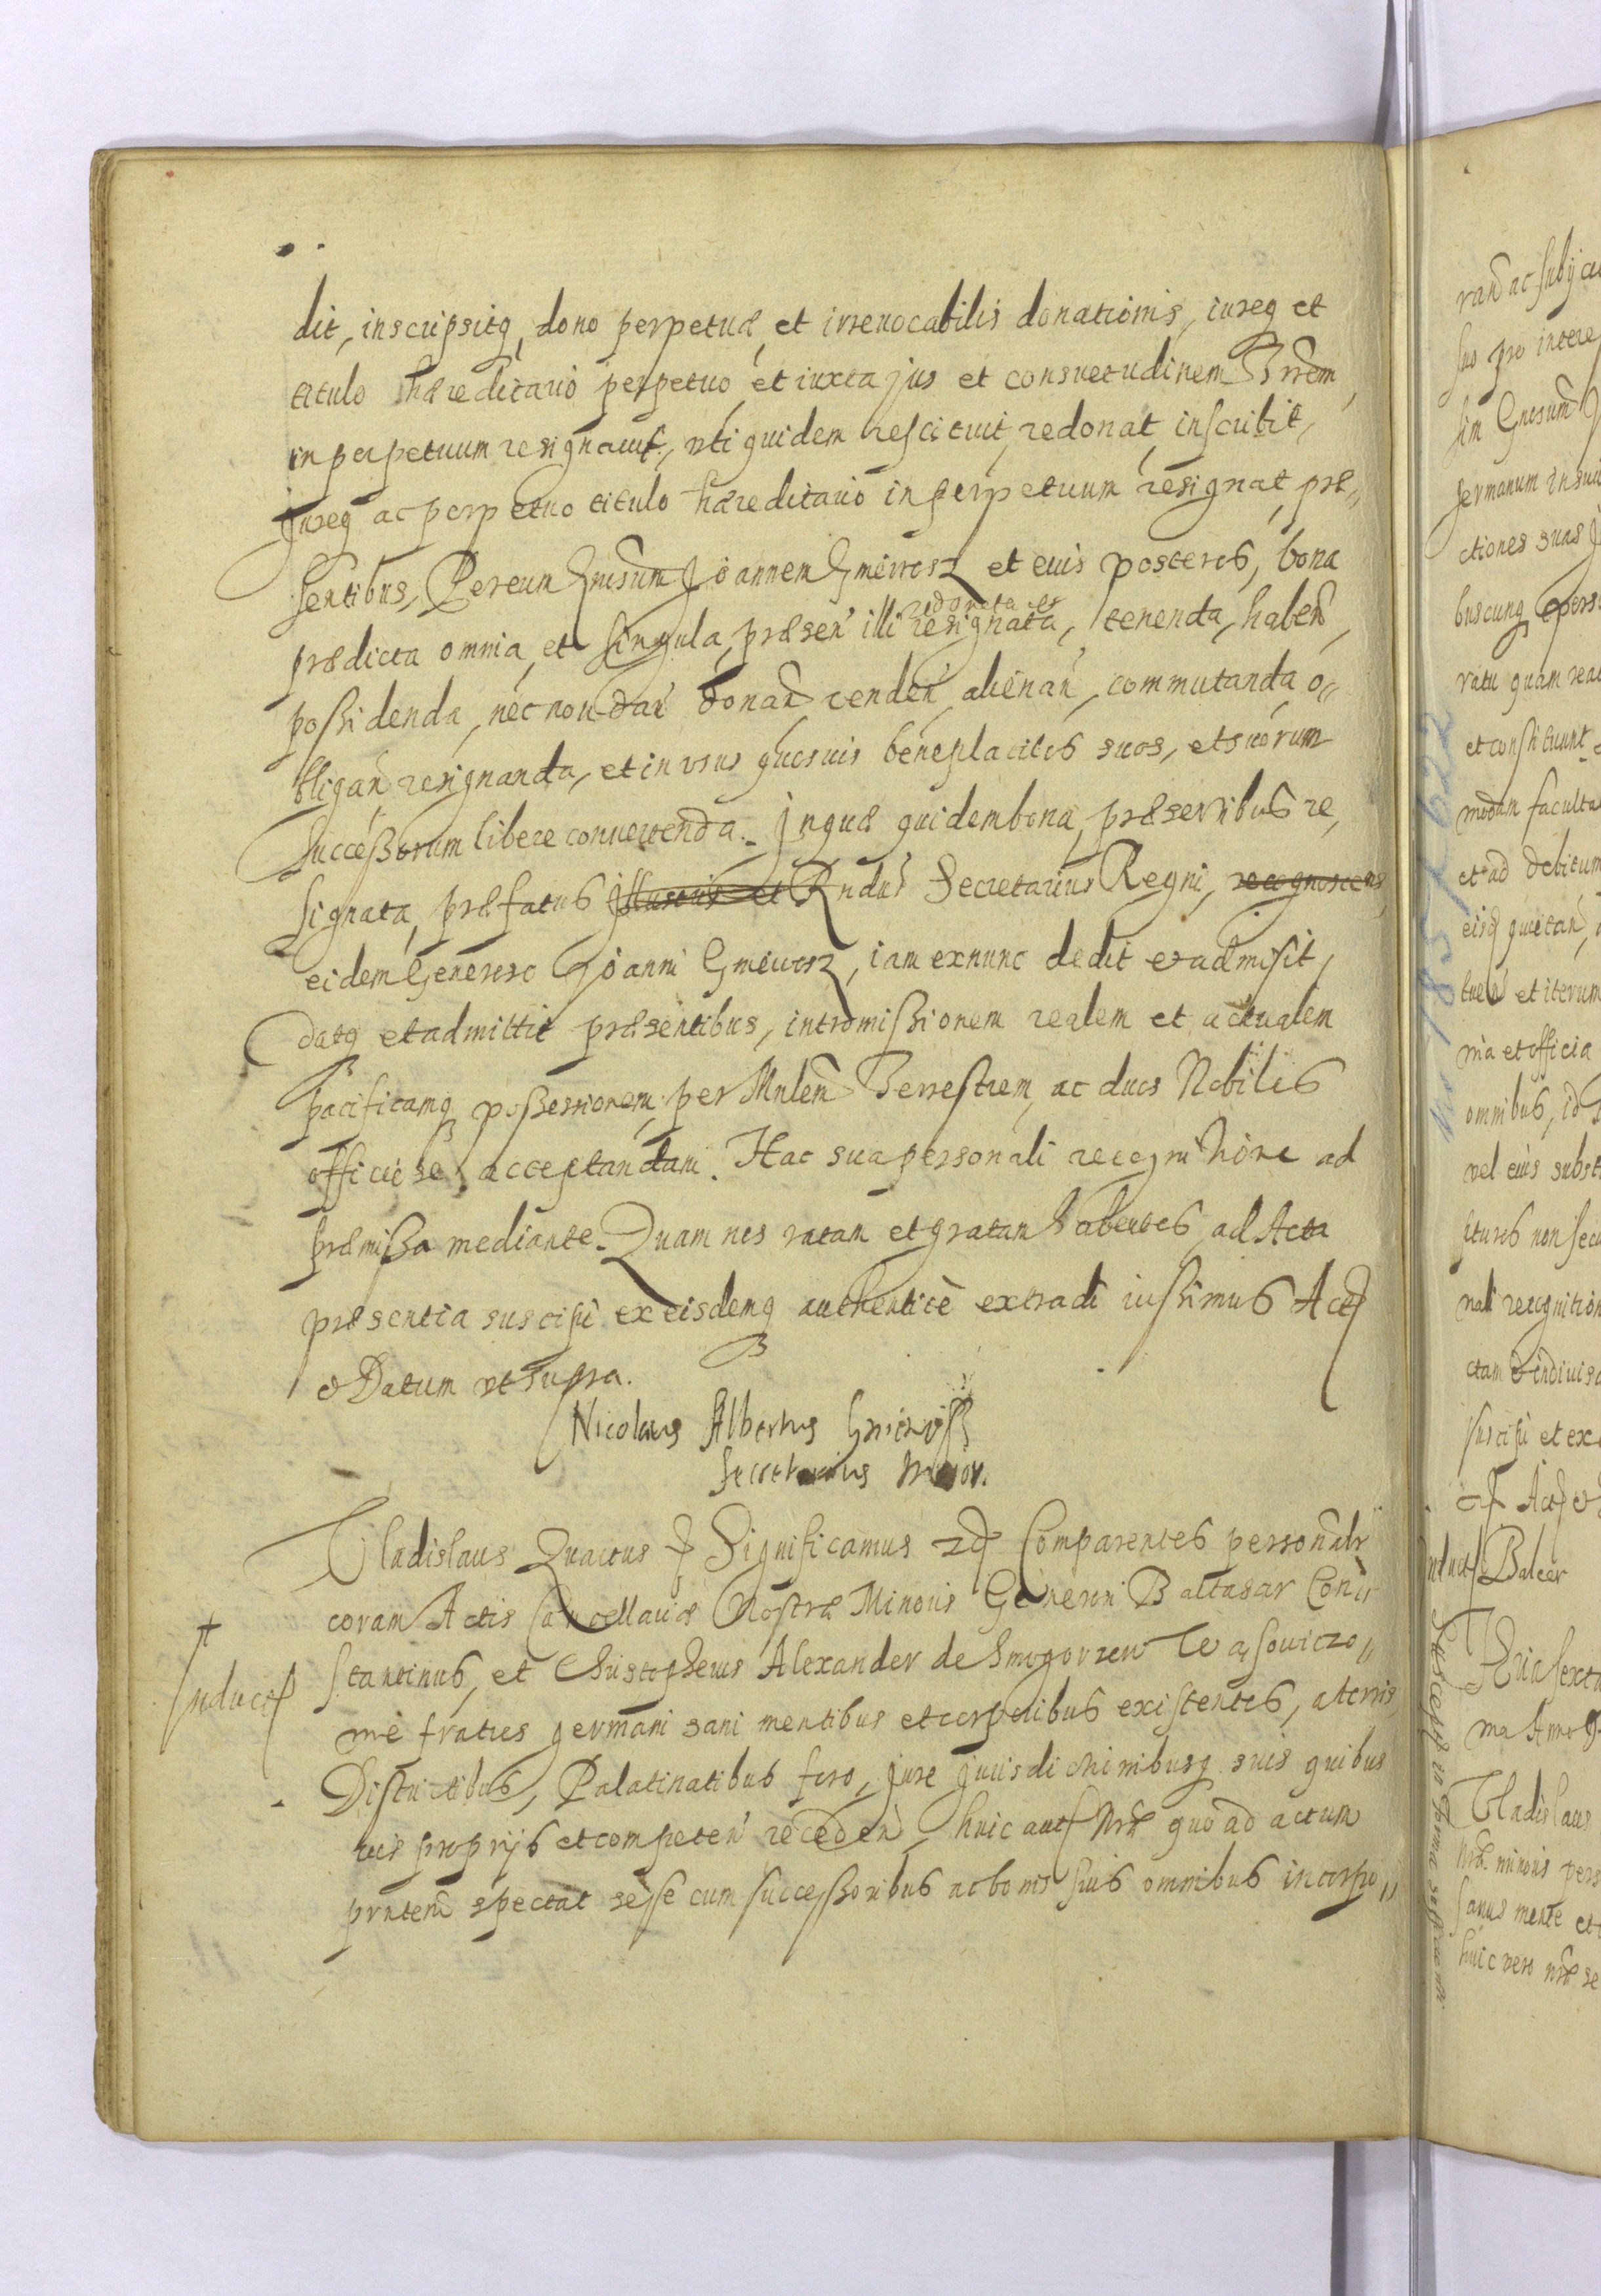 dit, inscripsitq, dono perpetuæ et irrevocabilis donationis, iureq et
titulo hæreditario perpetuo et iuxta jus et consuetudinem Trrem,
in perpetuum resignavit, uti quidem rescituit, redonat, inscribit,
Jureq ac perpetuo titulo hæreditario in perpetuum resignat, præ„
sentibus, Per eun Gnrsum Joannem Gniewosz et eius posteros, bona
redonata et
prædicta omnia et singula, præsen illi resignata, tenenda, haben,
possidenda, nec non dan donan, venden, alienan, commutanda, o„
bligan resignanda, et in usus quosvis beneplacitos suos, et suorum
Successorum libere convertenda. In quæ quidem bona, præsentibus re„
signata, præfatus Illustris et Rndus Secretarius Regni, recognoscens,
eidem Generoso Joanni Gniewosz, iam exnunc dedit et admisit,
datq et admittit præsentibus, intromissionem realem et actualem
pacificamq possessionem, per Mnlem Terrestrem, ac duos Nobiles
officiose acceptandam. Hac sua personali recognitione ad
præmissa mediante. Quam nos ratam et gratam habentes, ad Acta
præsentia suscipi ex eisdemq authenticè extradi iussimus Act
& Datum ut supra.
Nicolaus Albertus Gniewosz
Secretarius Maior.
Vladislaus Quartus Significamus Comparentes personalr
coram Actis Cancellariæ Nostræ Minoris Generosi Baltasar Con
Induct
stantinus, et Christopherus Alexander de Smogorzew Wąsowiczo„
wie fratres germani sani mentibus et corporibus existentes, a terris
Districtibus, Palatinatibus foro, jure jurisdictionibusq suis quibus
vis proprijs et competen receden, huic aut Nræ quo ad actum
prntem spectat sese cum successoribus ac bonis suis omnibus incorpo„
ran ac subijcien
suo pro intere
sim Gnrsum
germanum
ctiones suas
buscunq
ratu quam
et constituunt
modam faculta
et ad debitum
eisq quietan,
et iterum
et officia
omnibus, id
vel eius subst
nali recognition
ctam & indivisa
suscipi et ex
Act &
Induct Balcer
Feria sexta
ma Anno
Vladislaus
Nræ minoris pers
sanus mente et
huic vero nræ se